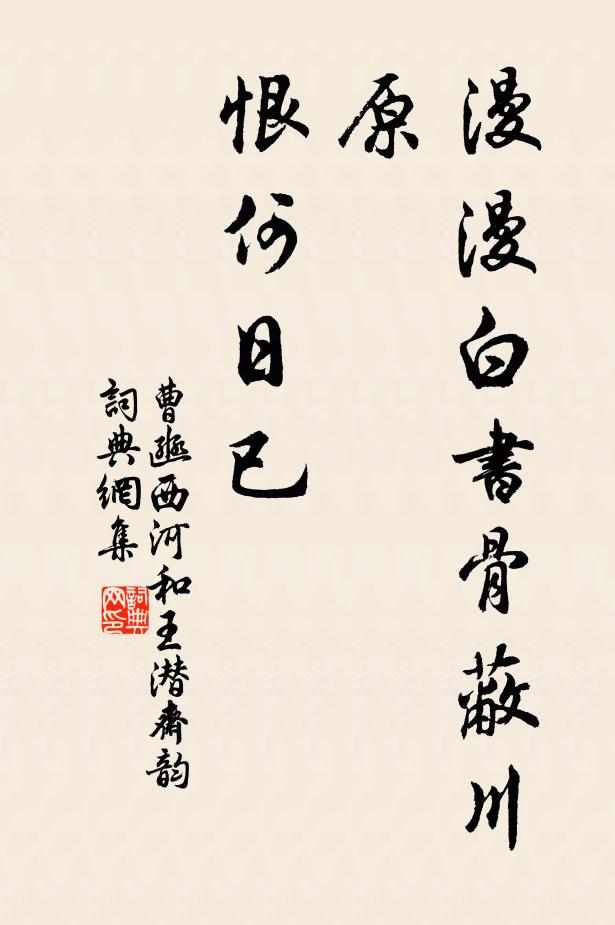 漫漫白書骨蔽川
原
恨何日已
曹豳西河和王潜齋韵
詞典網集
詞典网印